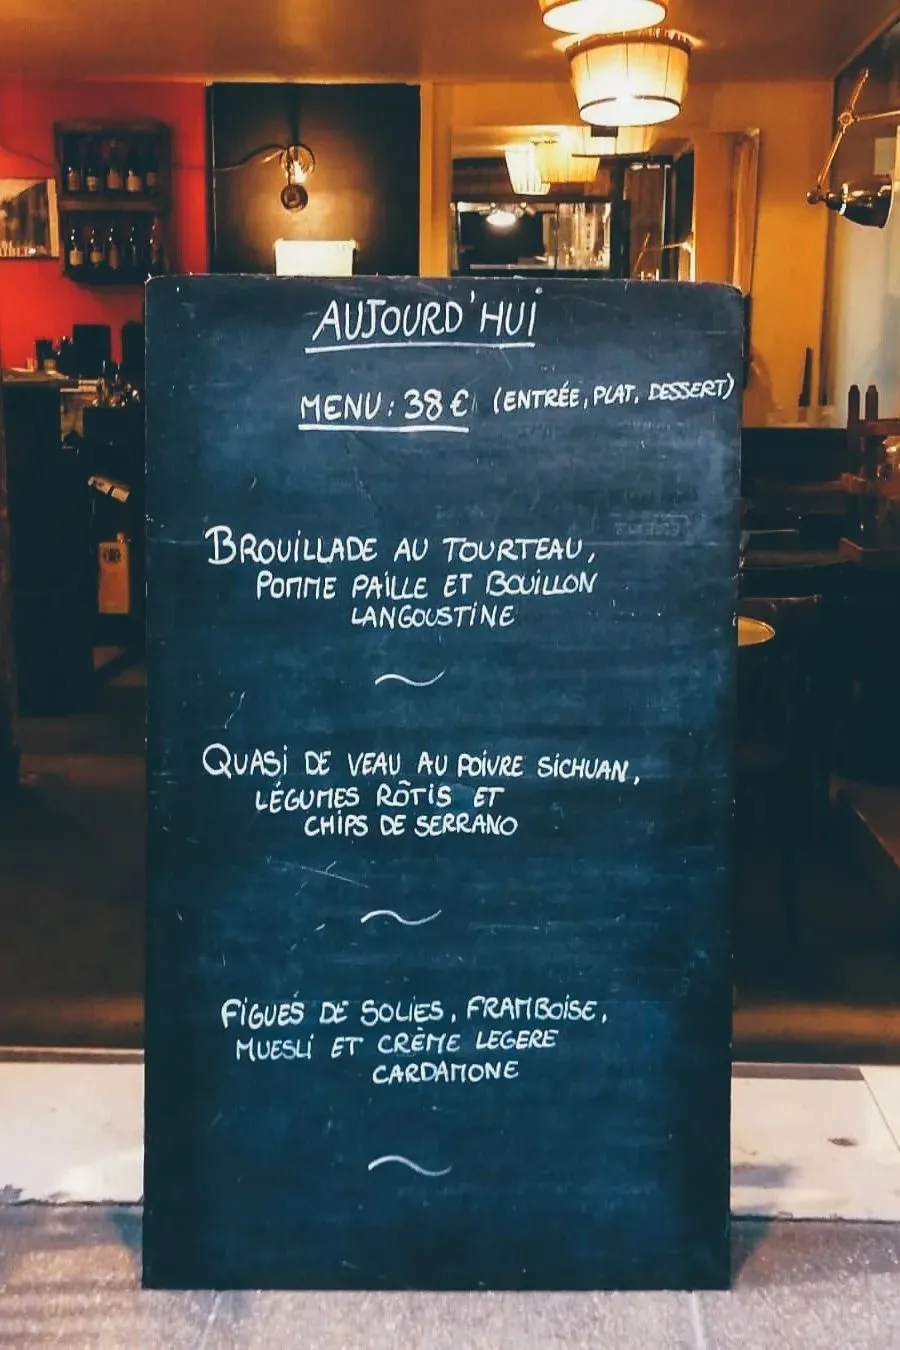 AUJOURD'HUI
MENU: 38 € (ENTRÉE, PLAT, DESSERT)
BROUILLADE AU TOURTEAU,
POMME PAILLE ET BOUILLON
LANGOUSTINE
QUASI DE VEAU AU POIVRE SICHUAN,
LÉGUMES RÔTIS ET
CHIPS DE SERRANO
FIGUES DE SOLIES, FRAMBOISE,
MUESLI ET CRÈME LEGERE
CARDAMONE